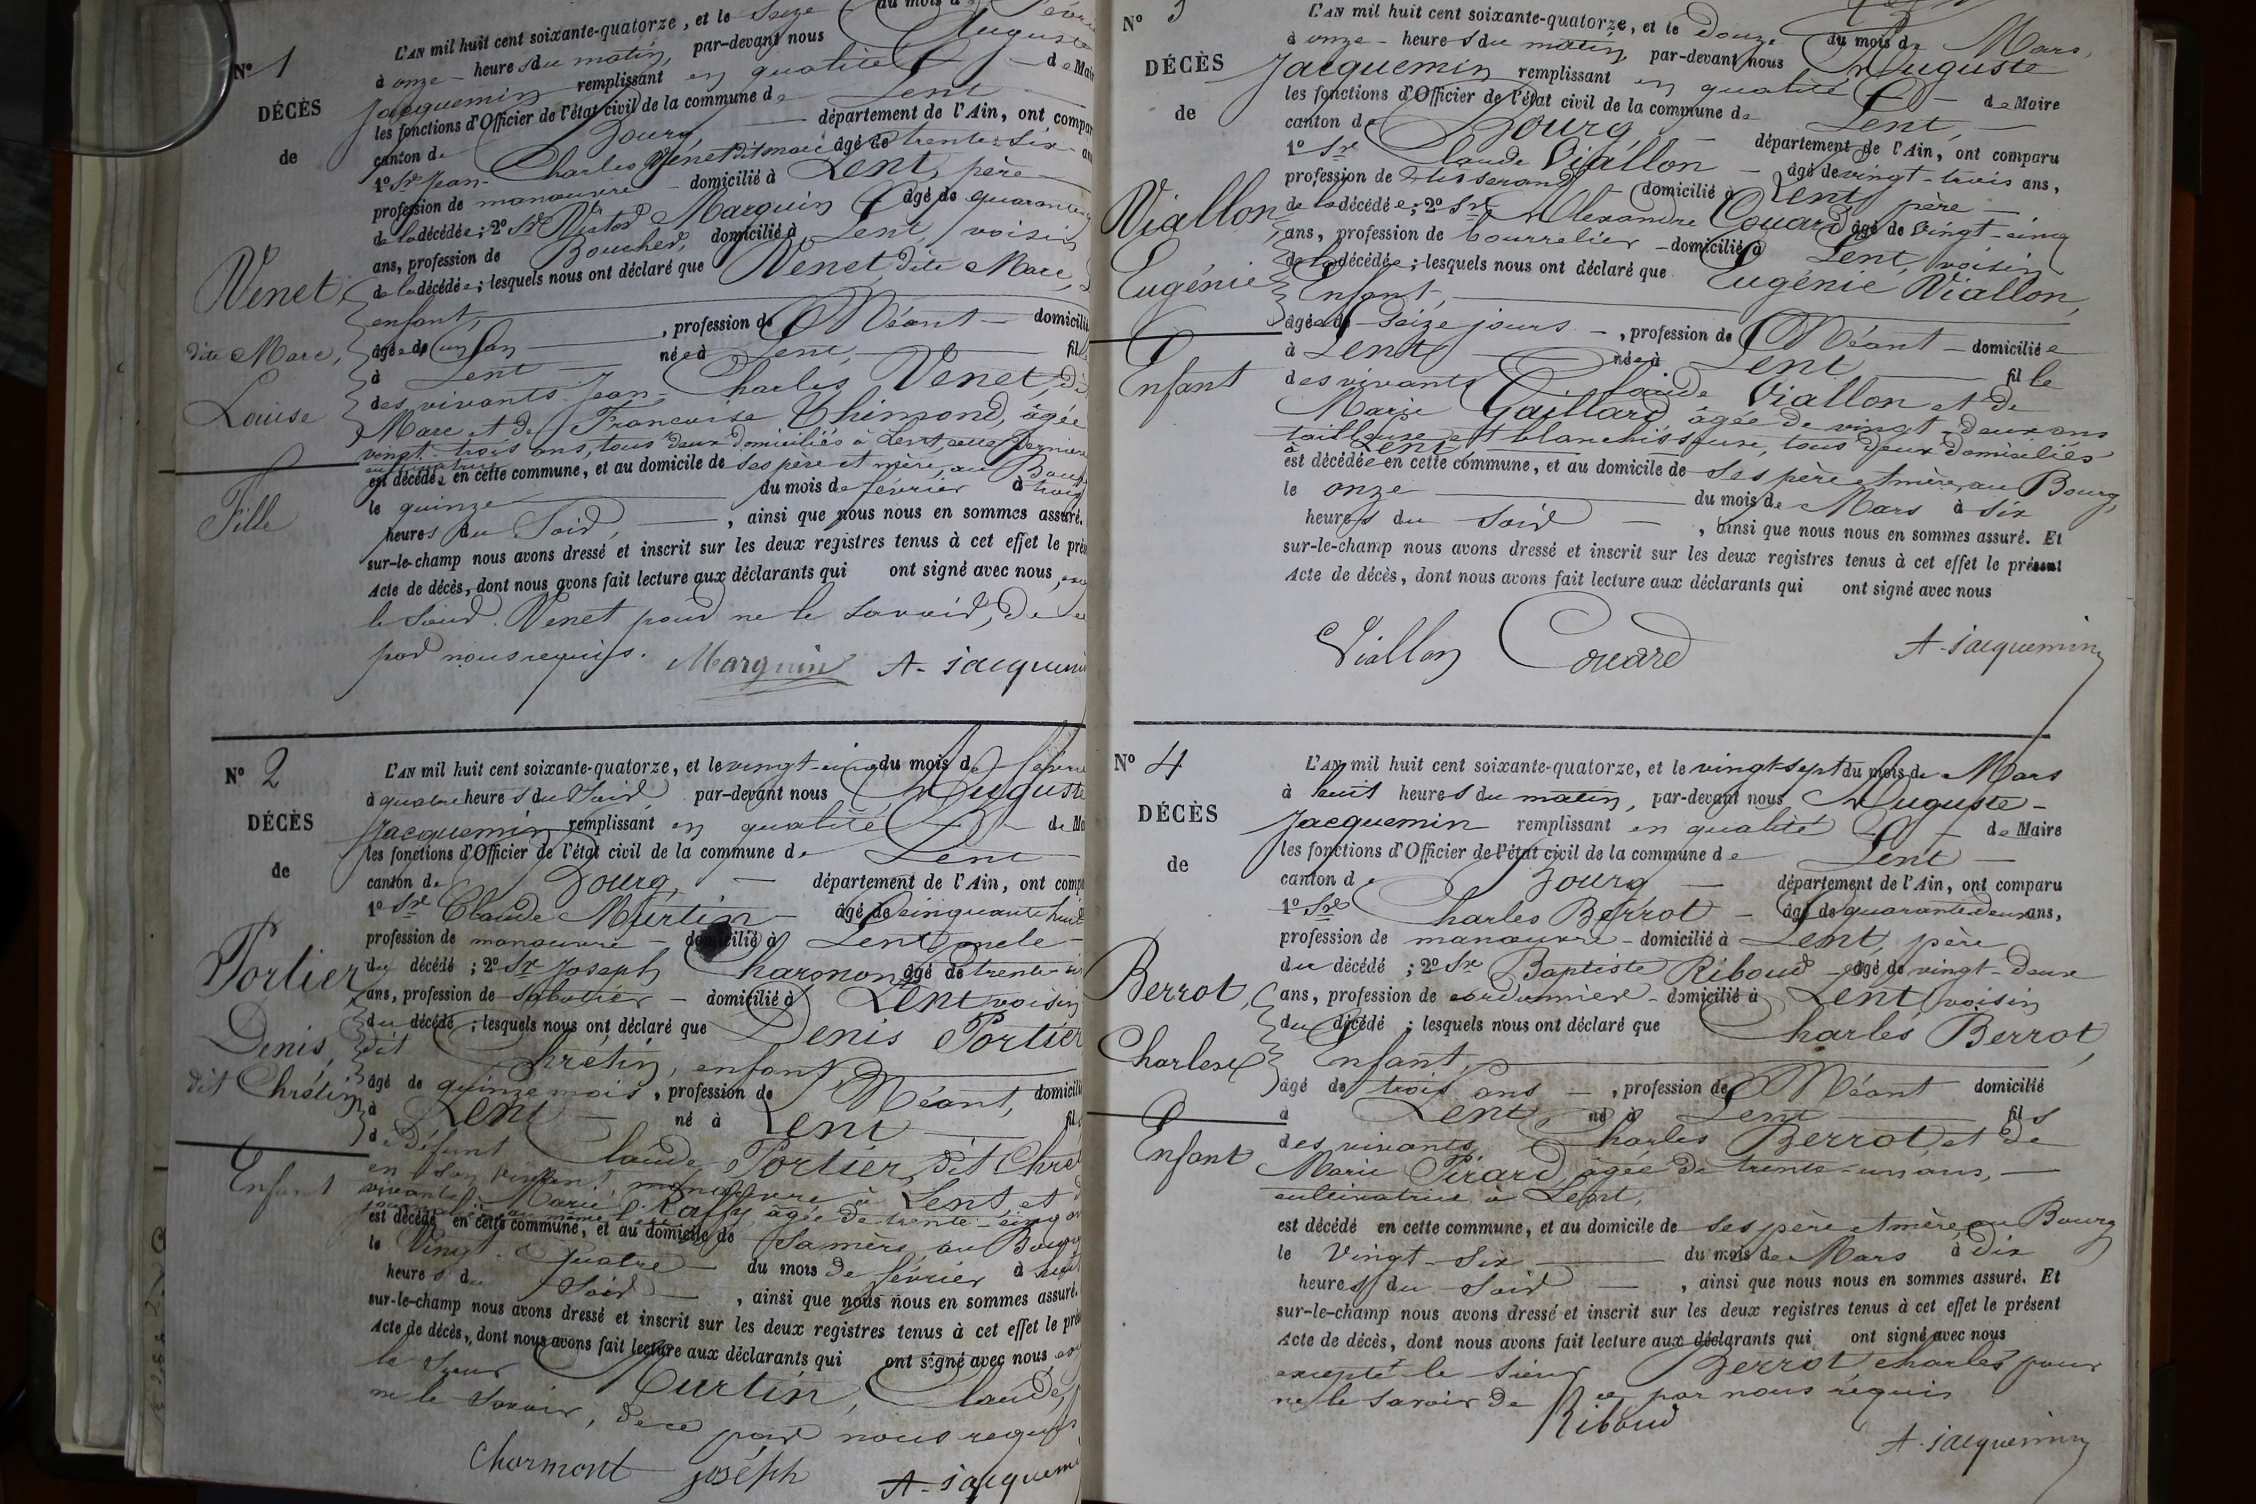 N° 1
DÉCÈS
de
Venet
dite Marc,
Louise
Fille
L'AN mil huit cent soixante-quatorze, et le Seize du mois de
à onze heures du matin, par-devant nous Auguste
Jacquemin remplissant en qualité de Mai
les fonctions d'Officier de l'état civil de la commune de Lent
canton de Bourg département de l'Ain, ont compar
1° Sr Jean-Charles Venet dit Marc âgé de trente-six
profession de manouvre domicilié à Lent, père
de la décédée; 2° Sr Victor Marquin âgé de quarante
ans, profession de Boucher, domicilié à Lent, voisin
de la décédée; lesquels nous ont déclaré que Venet dite Marc,
enfant,
âgée de un an, profession de Néant domicilié
à Lent née à Lent, fil
des vivants Jean-Charles Venet, dit
Marc et de Françoise Thimond, âgée
vingt-trois ans, tous deux domiciliés à Lent, cette dernière
est décédée en cette commune, et au domicile de ses père et mère, au Bourg
le quinze du mois de février à trois
heures du Soir, ainsi que nous nous en sommes assuré.
sur-le-champ nous avons dressé et inscrit sur les deux registres tenus à cet effet le prés
Acte de décès, dont nous avons fait lecture aux déclarants qui ont signé avec nous,
le Sieur Venet pour ne le savoir, de ce
par nous requis. Marquin A. Jacquemin
N° 2
DÉCÈS
de
Portier
Denis,
dit Chrétin
Enfant
L'AN mil huit cent soixante-quatorze, et le vingt-cinq du mois de février
à quatre heures du Soir, par-devant nous Auguste
Jacquemin remplissant en qualité de Ma
les fonctions d'Officier de l'état civil de la commune de Lent
canton de Bourg, département de l'Ain, ont compa
1° Sr Claude Murtin âgé de cinquante huit
profession de manouvre domicilié à Lent, oncle
du décédé; 2° Sr Joseph Charmont âgé de trente
ans, profession de sabotier domicilié à Lent, voisin
du décédé; lesquels nous ont déclaré que Denis Portier
dit Chrétin, enfant,
âgé de quinze mois, profession de Néant, domicilié
à Lent né à Lent fils
de défunt Claude Portier, dit Chrét
en son vivant manouvre à Lent, et de
vivante Marie Raffy âgée de trente-cinq an
est décédé en cette commune, et au domicile de Sa mère au Bourg
le Vingt-quatre du mois de février à
heures du Soir, ainsi que nous nous en sommes assuré.
sur-le-champ nous avons dressé et inscrit sur les deux registres tenus à cet effet le prés
Acte de décès, dont nous avons fait lecture aux déclarants qui ont signé avec nous
le Sieur Murtin, Claude,
ne le savoir, de ce par nous requis
Charmont joséph A. Jacquemin
N° 3
DÉCÈS
de
Viallon,
Eugénie
Enfant
L'AN mil huit cent soixante-quatorze, et le Douze du mois de Mars,
à onze heures du matin, par-devant nous Auguste
Jacquemin remplissant en qualité de Maire
les fonctions d'Officier de l'état civil de la commune de Lent,
canton de Bourg département de l'Ain, ont comparu
1° Sr Claude Viallon âgé de vingt-trois ans,
profession de tisserand domicilié à Lent, père
de la décédée; 2° Sr Alexandre Couard âgé de vingt-cinq
ans, profession de bourrelier domicilié à Lent, voisin
de la décédée; lesquels nous ont déclaré que Eugénie Viallon,
Enfant,
âgée de Seize jours, profession de Néant domiciliée
à Lent née à Lent fille
des vivants Claude Viallon et de
Marie Gaillard, âgée de vingt-deux ans
tailleuse et blanchisseuse, tous deux domiciliés
à Lent
est décédée en cette commune, et au domicile de Ses père et mère, au Bourg,
le onze du mois de Mars à six
heures du Soir, ainsi que nous nous en sommes assuré. Et
sur-le-champ nous avons dressé et inscrit sur les deux registres tenus à cet effet le présent
Acte de décès, dont nous avons fait lecture aux déclarants qui ont signé avec nous
Viallon Couard A. Jacquemin
N° 4
DÉCÈS
de
Berrot,
Charles
Enfant
L'AN mil huit cent soixante-quatorze, et le vingt-sept du mois de Mars
à huit heures du matin, par-devant nous Auguste
Jacquemin remplissant en qualité de Maire
les fonctions d'Officier de l'état civil de la commune de Lent
canton de Bourg département de l'Ain, ont comparu
1° Sr Charles Berrot âgé de quarante deux ans,
profession de manouvre domicilié à Lent, père
du décédé; 2° Sr Baptiste Riboud âgé de vingt-deux
ans, profession de cordonnier domicilié à Lent, voisin
du décédé; lesquels nous ont déclaré que Charles Berrot,
Enfant,
âgé de trois ans, profession de Néant domicilié
à Lent, né à Lent fils
des vivants Charles Berrot et de
Marie Pirard, âgée de trente-un ans,
cultivatrice à Lent,
est décédé en cette commune, et au domicile de ses père et mère, au Bourg
le Vingt-Six du mois de Mars à dix
heures du Soir, ainsi que nous nous en sommes assuré. Et
sur-le-champ nous avons dressé et inscrit sur les deux registres tenus à cet effet le présent
Acte de décès, dont nous avons fait lecture aux déclarants qui ont signé avec nous
excepté le Sieur Berrot Charles pour
ne le savoir de ce par nous requis
Riboud
A. Jacquemin